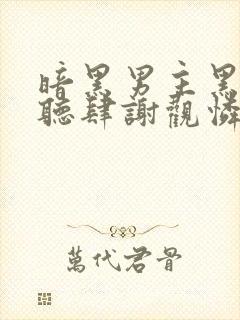 暗黑男主黑
聽肆謝觀憐
萬代君骨